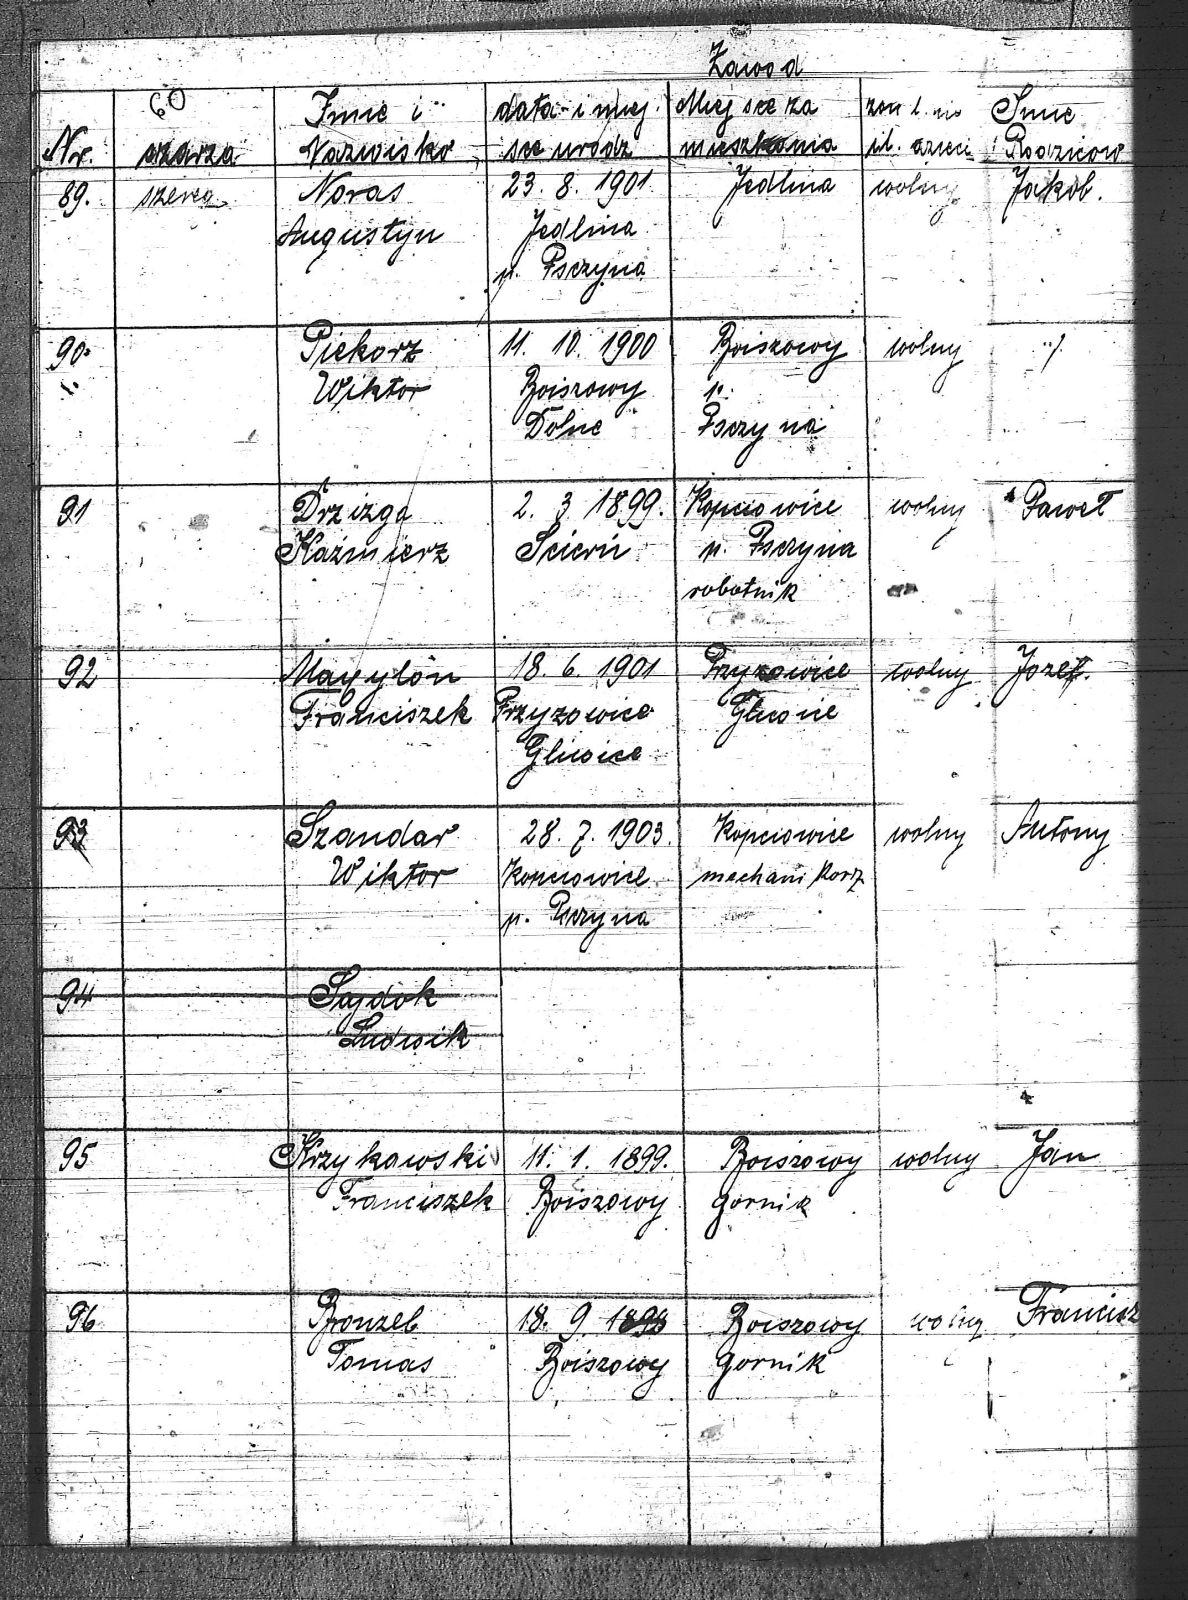 Zawod
60
Nr. szarża Imie i Nazwisko data i miej sce urodz Miej sce za mieszkania zon l. no il. dzieci Imie Rodzicow
89. szereg. Noras 23. 8. 1901 Jedlina wolny Jakob.
Augustyn Jedlina
p. Psczyna
90. Piekorz 11. 10. 1900 Boiszowy wolny "/.
Wiktor Boiszowy p.
Dolne Psczyna
91 Drzizga 2. 3. 1899. Kopciowice wolny Paweł
Kaźmierz Ścierń p. Psczyna
robotnik
92 18. 6. 1901 Przyzowice wolny Jozef.
Franciszek Przyzowice Gliwice
Gliwice
93 Szandar 28. 7. 1903. Kopciowice wolny Antony
Wiktor Kopciowice mechani karz
p. Psczyna
94 Sajdok
Ludwik
95 Krzykawski 11. 1. 1899. Boiszowy wolny Jan
Franciszek Boiszowy gornik
96 Bronzel 18. 9. 1898 Boiszowy wolny Francisz
Tomas Boiszowy gornik